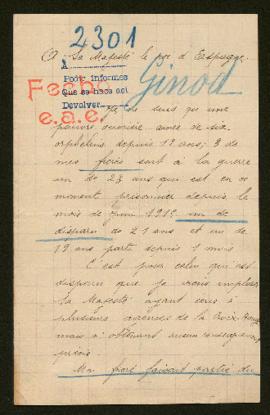 2301
A Sa Majesté le roi d'Espagne.
A
Pedir informes
Que se hace así
Devolver
Ginod
Fecho
e.a.e.
Je ne suis qu'une
pauvre ouvrière ainée de six
orphelins depuis 11 ans; 3 de
mes frères sont à la guerre
un de 23 ans qui est en ce
moment prisonnier depuis le
mois de Juin 1915 un de
disparu de 21 ans et un de
19 ans parti depuis 1 mois
C'est pour celui qui est
disparu que je viens implorer
Sa Majesté ayant écris à
plusieurs agences de la Croix-Rouge
mais n'obtenant aucun renseignement
précis
Mon frère faisait partie du